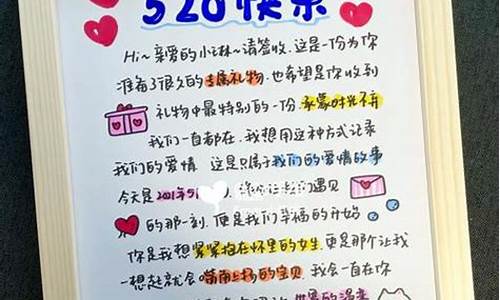 520快乐
Hi~亲爱的小琳~请签收.这是一份为你
准备了很久的专属礼物.也希望是你收到
礼物中最特别的一份.承蒙时光不弃
我们一直都在.我想用这种方式记录
我们的爱情.这是只属于我们的爱情故事
今天是2021年5 我们遇见
的那一刻.便是我们幸福的开始
你是我想紧紧抱在怀里的女生.更是那个让我
一想起就会嘴角上扬的宝贝.我会一直在你